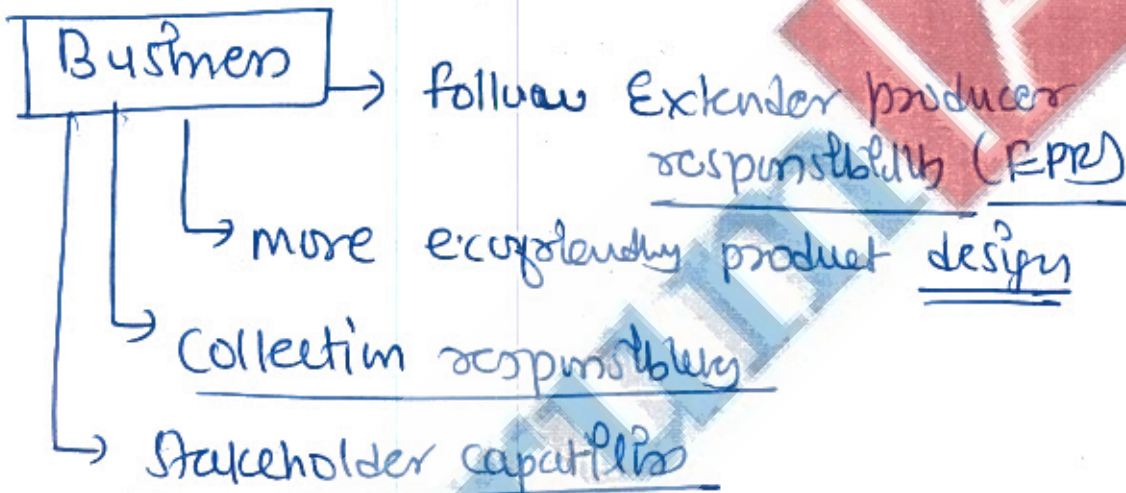 Business
→ follow Extender producer
responsibility (EPR)
→ more ecofriendly product design
→ Collection responsibility
→ Stakeholder capatilism